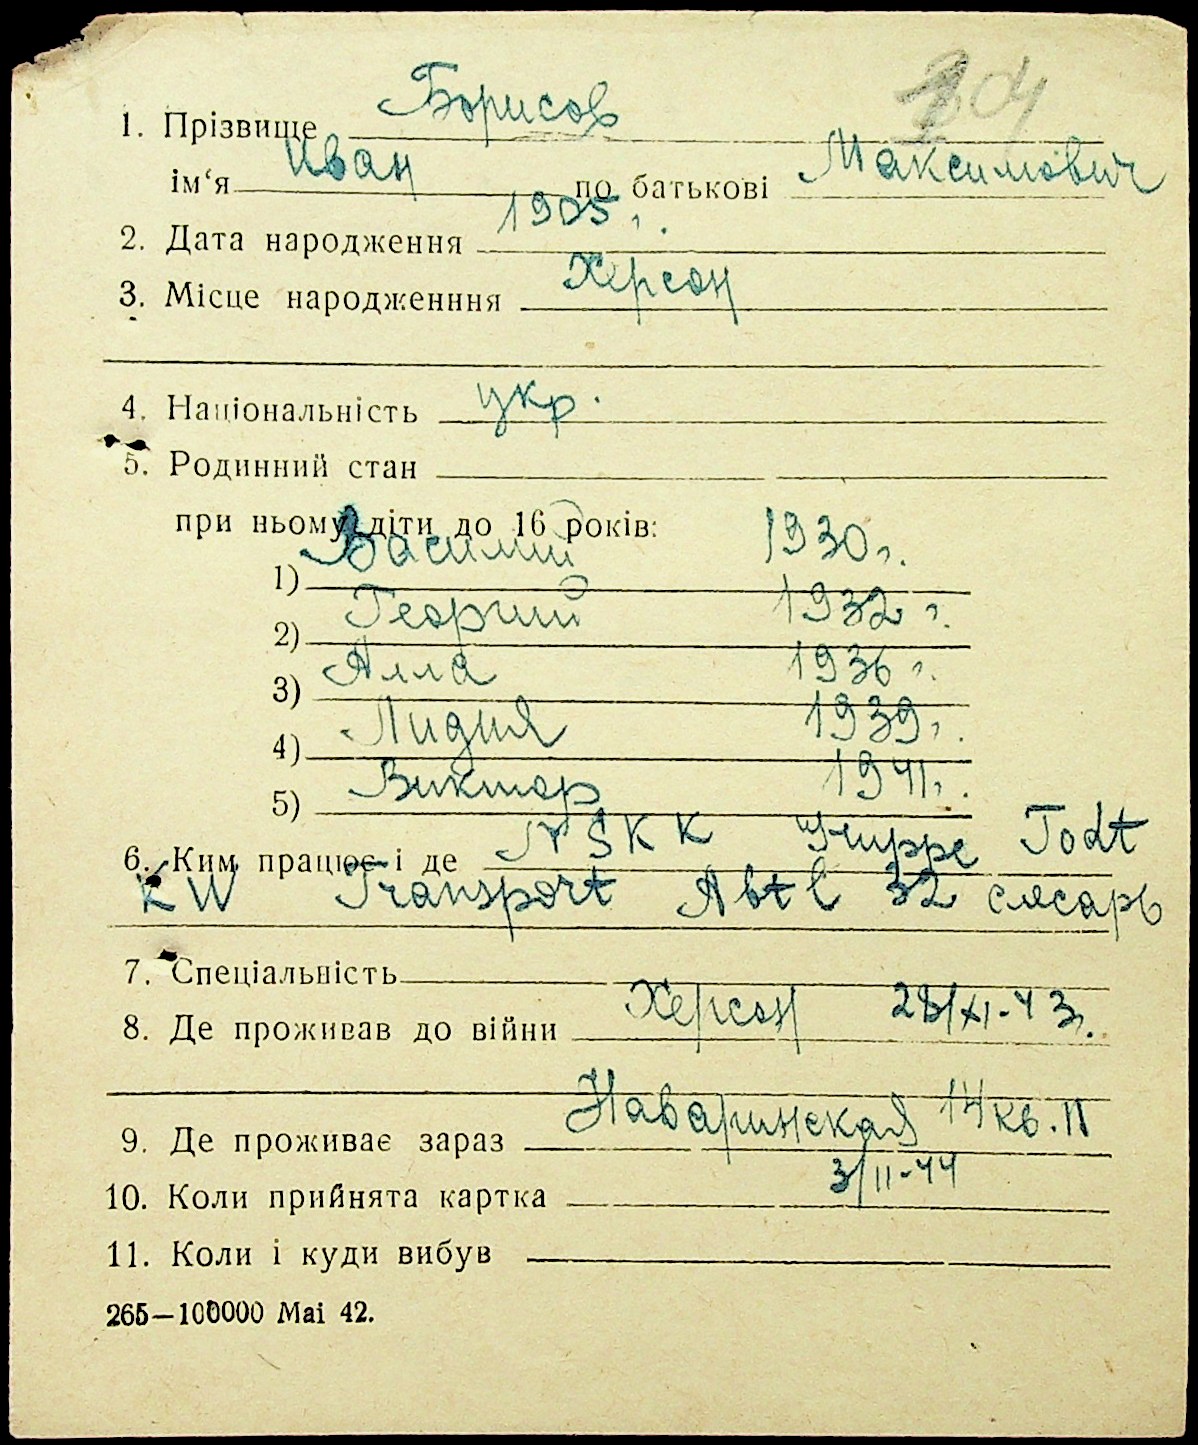 04
1. Прізвище Борисов
ім'я Иван по батькові Максимович
2. Дата народження 1905 г.
3. Місце народженння Херсон
4. Національність укр.
5. Родинний стан
при ньому діти до 16 років:
1) Василий 1930 г.
2) Георгий 1932 г.
3) Алла 1936 г.
4) Лидия 1939 г.
5) Виктор 1941 г.
6. Ким працює і де NSKK Gruppe Todt
KW Transport Abtl 32 слесарь
7. Спеціальність
8. Де проживав до війни Херсон 28/XI-43 г.
9. Де проживає зараз Наваринская 14 кв. 11
10. Коли прийнята картка 3/II-44
11. Коли і куди вибув
265—100000 Mai 42.